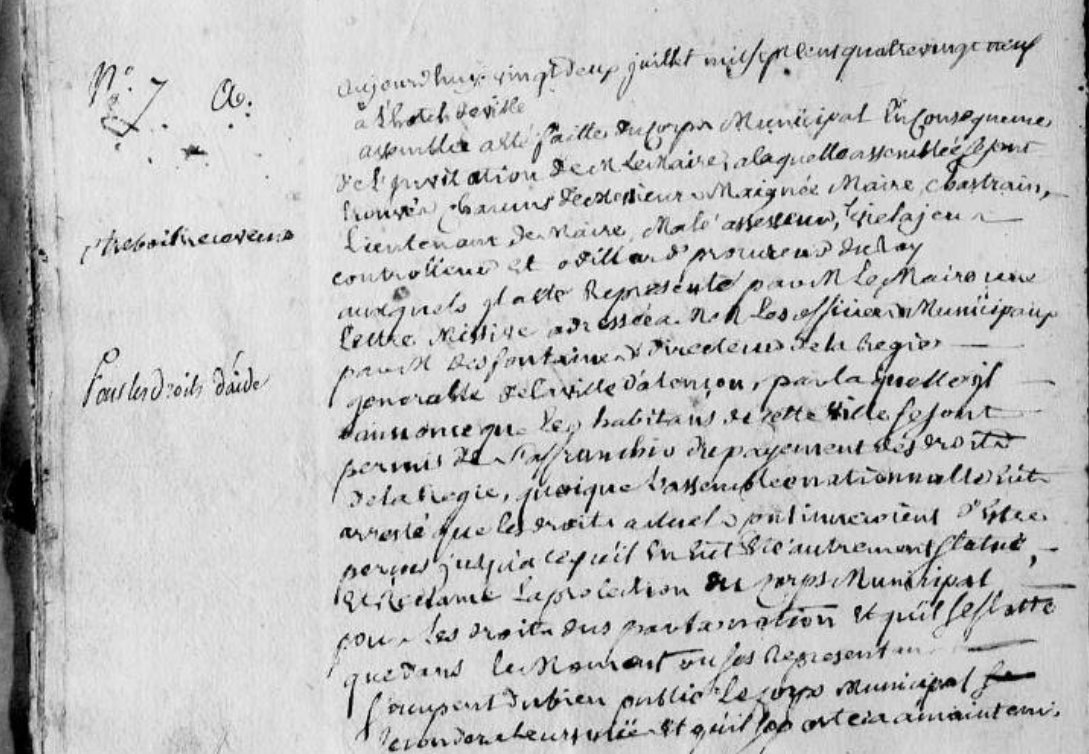 N°. 7 A.
aujourdhuy vingt deux juillet mil sept cent quatre vingt neuf
a l'hotel deville
assemblée a été faitte du corps Municipal En Consequence
de L'invitation de M. Le Maire, a laquelle assemblée se sont
trouvés chacuns de Messieurs Maignée Maire, chastrain,
Lieutenant de Maire, Malé assesseur,
controlleur et odillard procureur du Roy
auxquels il a été Représenté par M. Le Maire une
Lettre Missive adressée a MM Les officiers Municipaux
par M. Desfontaines directeur de la Regie
generalle de la ville d'alençon, par laquelle il
annonce que les habitans de cette ville se sont
permis de s'affranchir du payement des droits
de la Regie, quoique L'assemblée nationnalle Eut
arresté que les droits actuels continueroient d'Estre
perçus jusqu'a ce qu'il En Eut Eté autrement statué,
Et Réclame La protection du corps Municipal
pour les droits dus par la nation Et qu'il se flatte
que dans le Moment ou ses Representans
s'occupent du bien public Le corps Municipal
secondera leurs vües Et qu'il se portera a maintenir
Pour les Droits d'aide